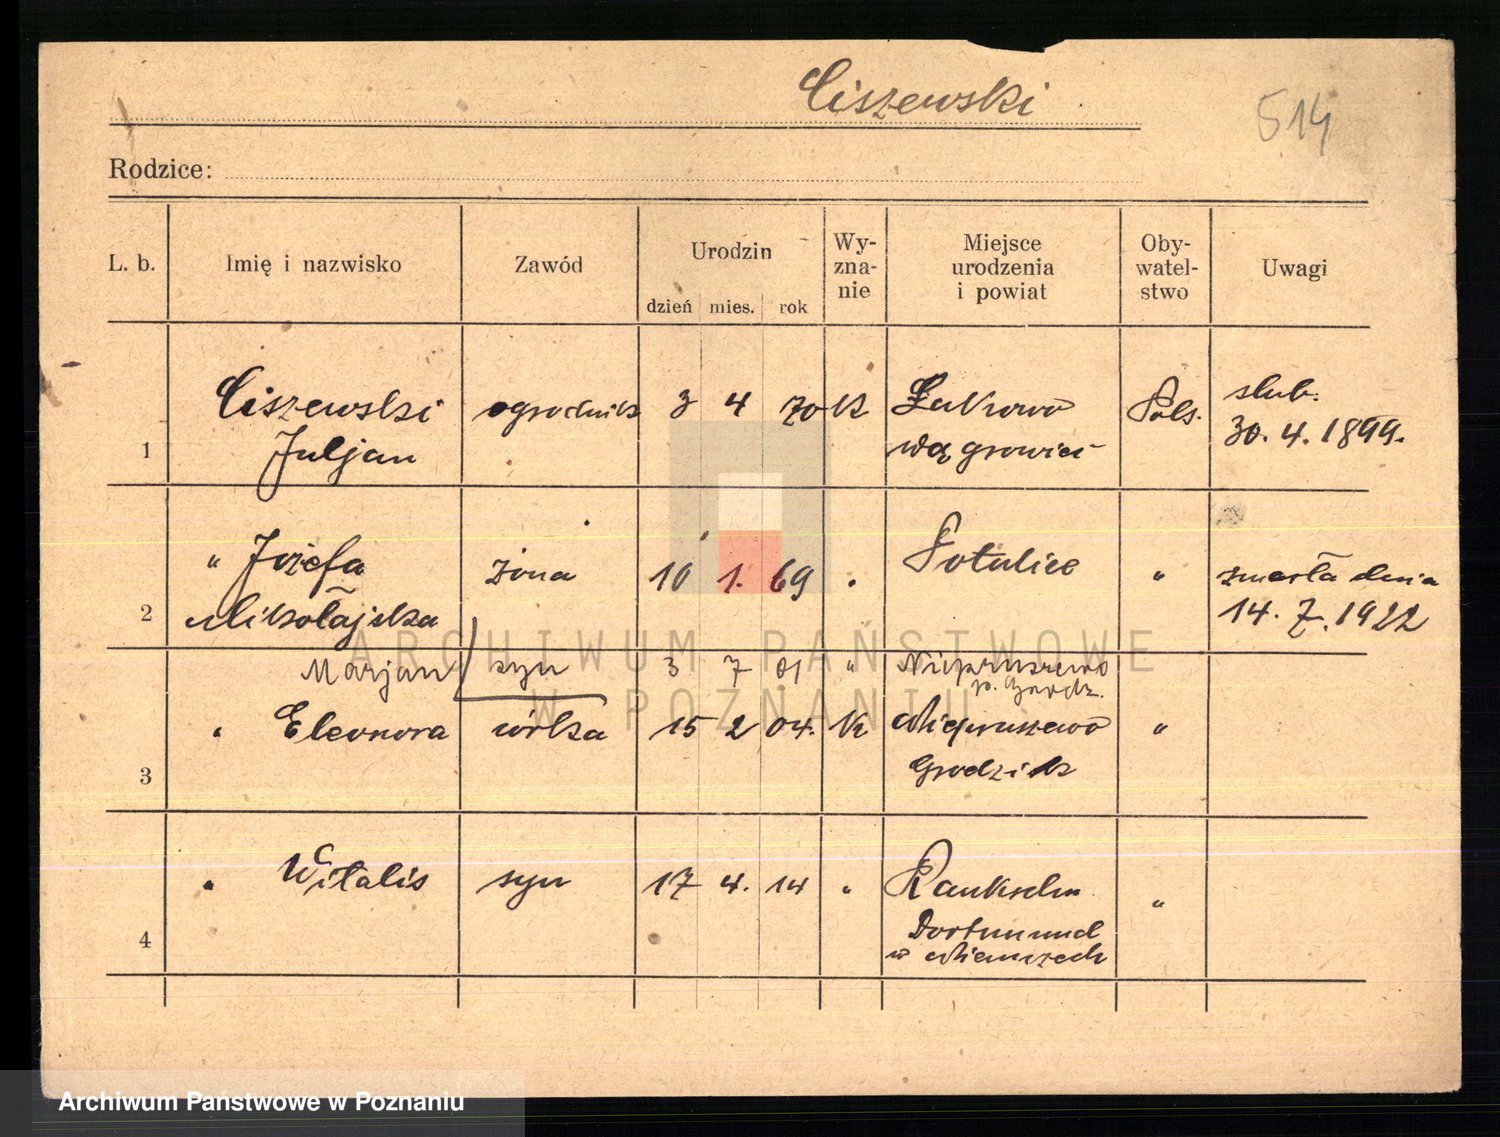 Ciszewski
514
Rodzice:
L. b. Imię i nazwisko Zawód Urodzin dzień mies. rok Wy-zna-nie Miejsce urodzenia i powiat Oby-watel-stwo Uwagi
Ciszewski ogrodnik 3 4 70 K Łukowo Pols. slub.
1 Juljan wągrowiec 30. 4. 1899.
" Józefa żona 10 1. 69 " Potulice " zmarła dnia
2 Mikołajska 14. 7. 1922
Marjan syn 3 7 01 " Niepruszewo
p. Grodz.
" Eleonora córka 15 2 04. K Niepruszewo "
3 Grodzisk
" Witalis syn 17 4. 14 "
"
4 Dortmund
w Niemczech
ARCHIWUM PAŃSTWOWE
W POZNANIU
Archiwum Państwowe w Poznaniu